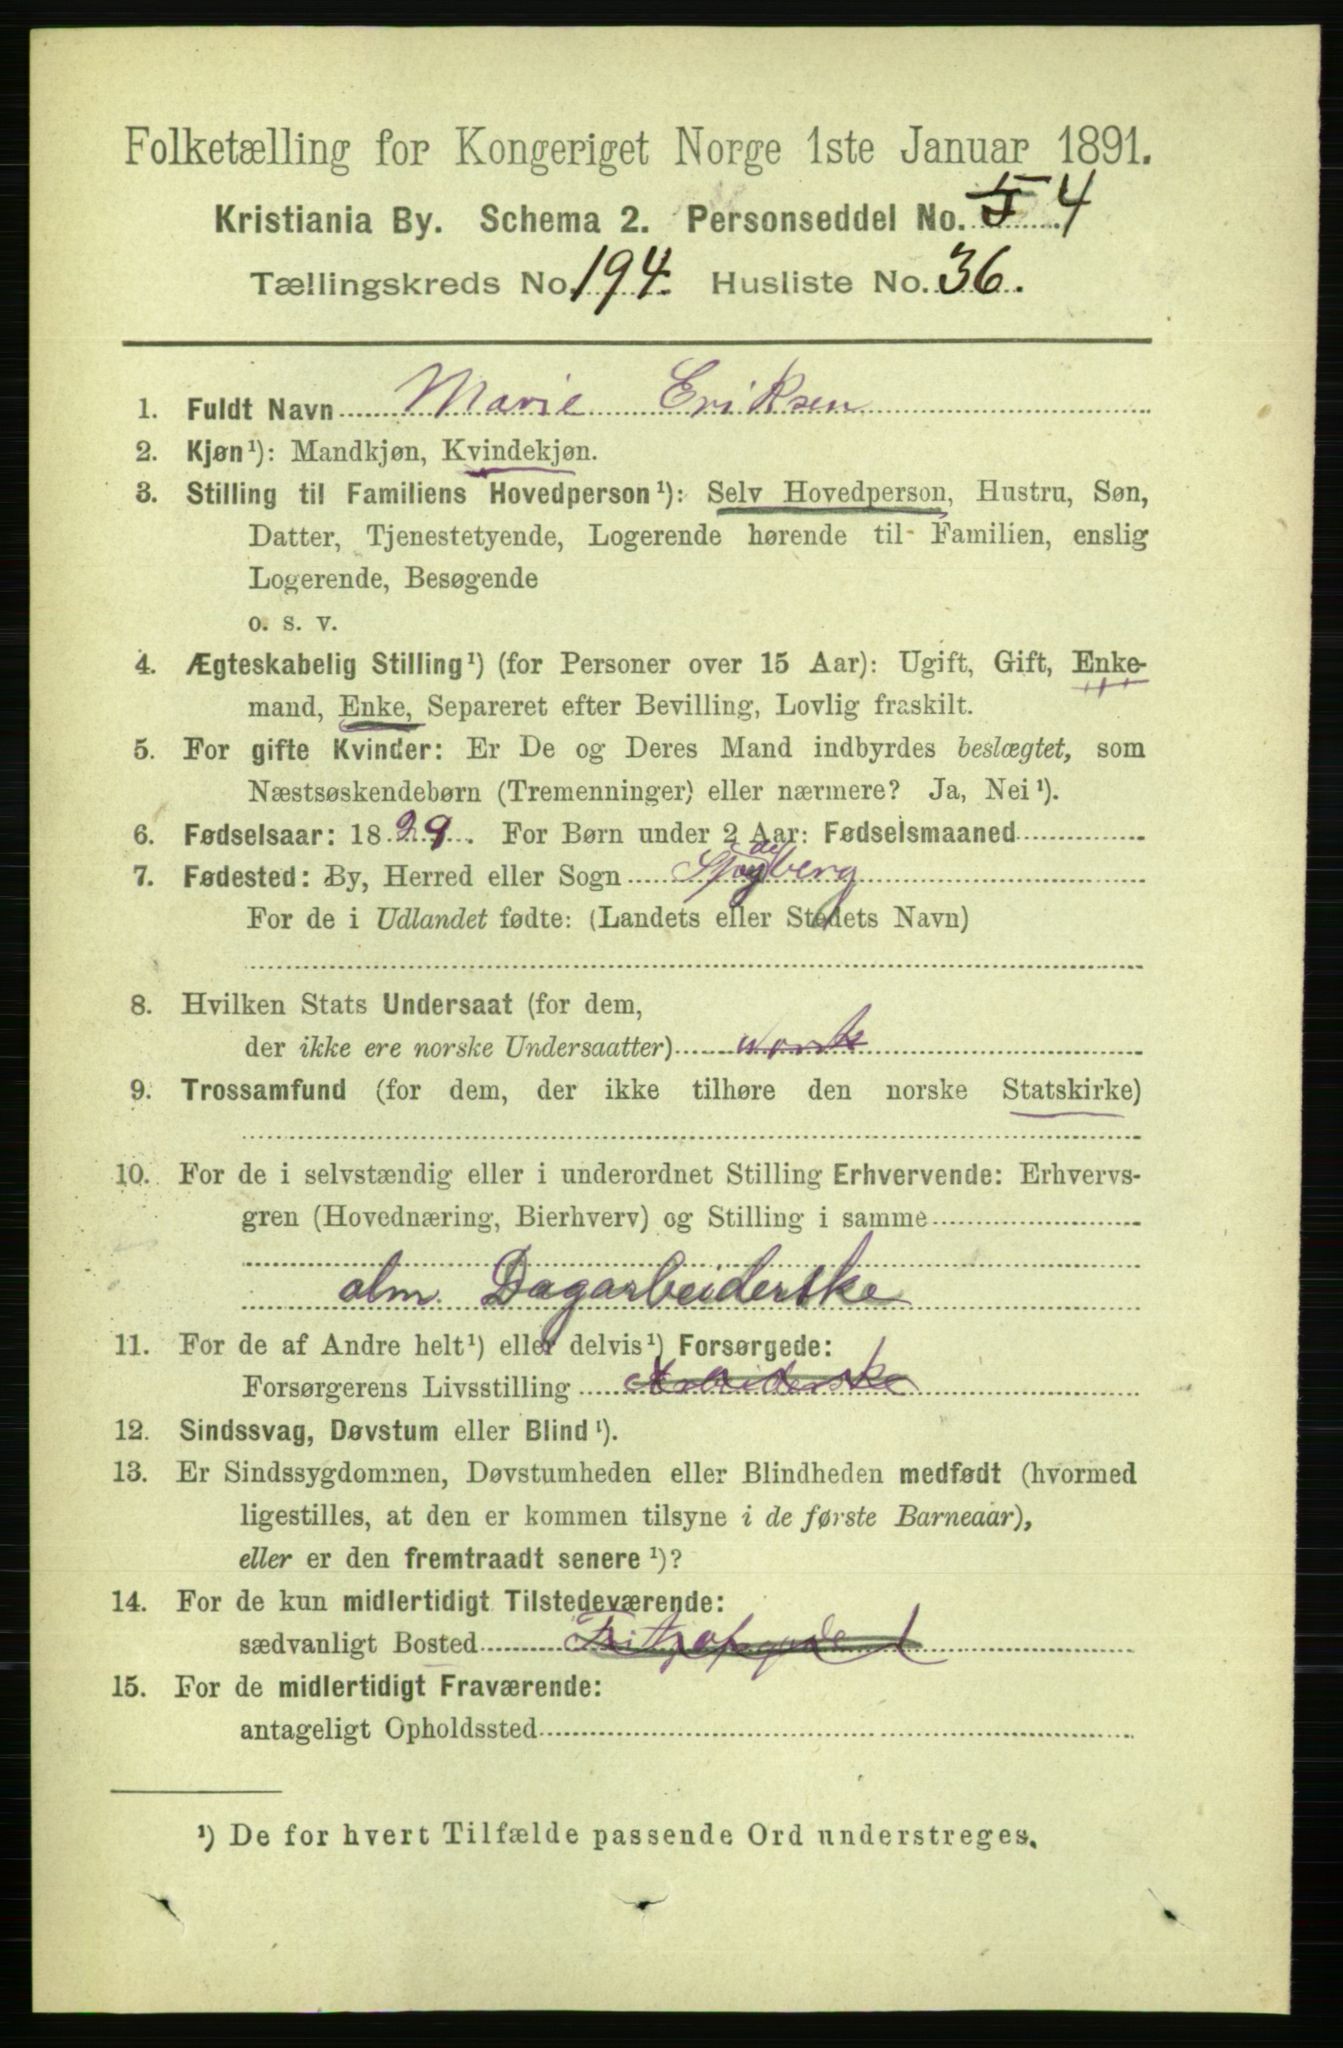 Folketælling for Kongeriget Norge 1ste Januar 1891.
Kristiania By. Schema 2. Personseddel No. 4
Tællingskreds No. 194. Husliste No. 36.
1. Fuldt Navn Marie Eriksen
2. Kjøn¹): Mandkjøn, Kvindekjøn.
3. Stilling til Familiens Hovedperson¹): Selv Hovedperson, Hustru, Søn,
Datter, Tjenestetyende, Logerende hørende til Familien, enslig
Logerende, Besøgende
o. s. v.
4. Ægteskabelig Stilling¹) (for Personer over 15 Aar): Ugift, Gift, Enke-
mand, Enke, Separeret efter Bevilling, Lovlig fraskilt.
5. For gifte Kvinder: Er De og Deres Mand indbyrdes beslægtet, som
Næstsøskendebørn (Tremenninger) eller nærmere? Ja, Nei¹).
6. Fødselsaar: 1829. For Børn under 2 Aar: Fødselsmaaned
7. Fødested: By, Herred eller Sogn
For de i Udlandet fødte: (Landets eller Stedets Navn)
8. Hvilken Stats Undersaat (for dem,
der ikke ere norske Undersaatter) norsk
9. Trossamfund (for dem, der ikke tilhøre den norske Statskirke)
10. For de i selvstændig eller i underordnet Stilling Erhvervende: Erhvervs-
gren (Hovednæring, Bierhverv) og Stilling i samme
alm Dagarbeiderske
11. For de af Andre helt¹) eller delvis¹) Forsørgede:
Forsørgerens Livsstilling Arbeiderske
12. Sindssvag, Døvstum eller Blind¹).
13. Er Sindssygdommen, Døvstumheden eller Blindheden medfødt (hvormed
ligestilles, at den er kommen tilsyne i de første Barneaar),
eller er den fremtraadt senere¹)?
14. For de kun midlertidigt Tilstedeværende:
sædvanligt Bosted
15. For de midlertidigt Fraværende:
antageligt Opholdssted
¹) De for hvert Tilfælde passende Ord understreges.